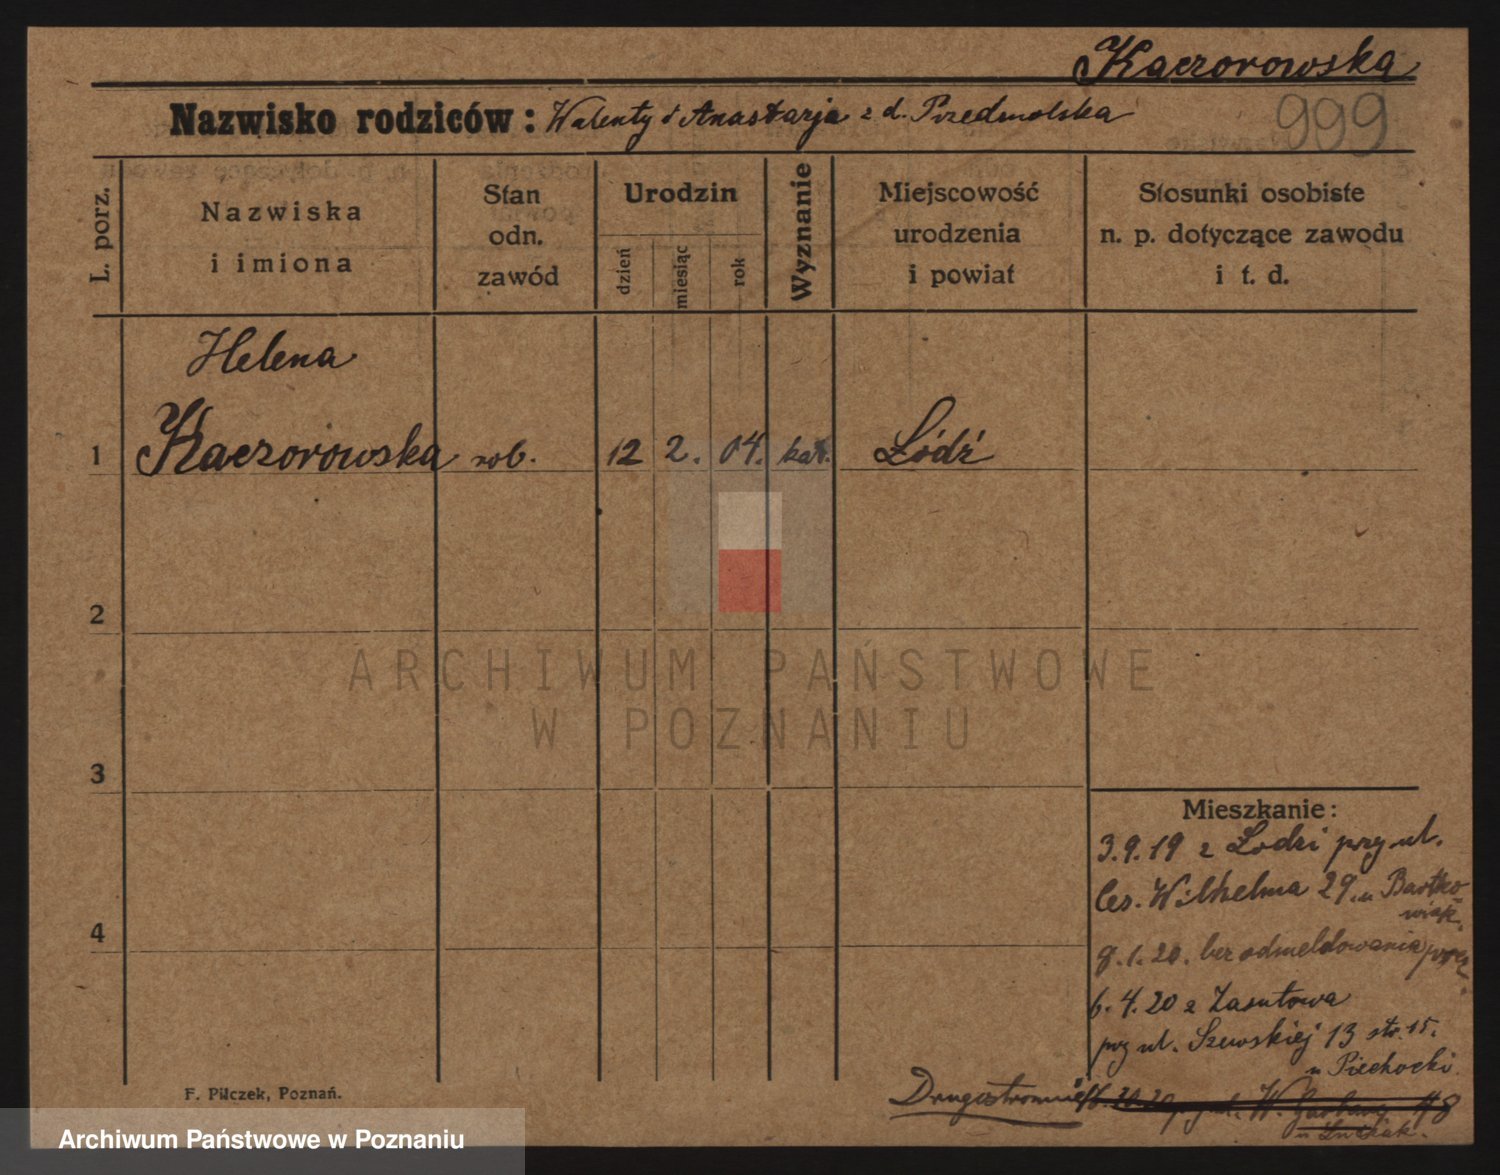 Kaczorowska
Nazwisko rodziców: Walenty i Anastazja z d. Przedmolska
999
L. porz.
Nazwiska
i imiona
Stan
odn.
zawód
Urodzin
dzień
miesiąc
rok
Wyznanie
Miejscowość
urodzenia
i powiat
Stosunki osobiste
n. p. dotyczące zawodu
i t. d.
Helena
1 Kaczorowska rob. 12 2. 04. kat. Łódź
2
3
4
ARCHIWUM PAŃSTWOWE
W POZNANIU
Mieszkanie:
3.9.19 z Łodzi przy ul.
Ces. Wilhelma 29. u Bartko-
wiak.
8.1.20. bez odmeldowania
6.4.20 z Zasutowa
przy ul. Szewskiej 13 str. 15.
u Piechocki.
Drugostronnie
W. Garbary 48
F. Pilczek, Poznań.
Archiwum Państwowe w Poznaniu